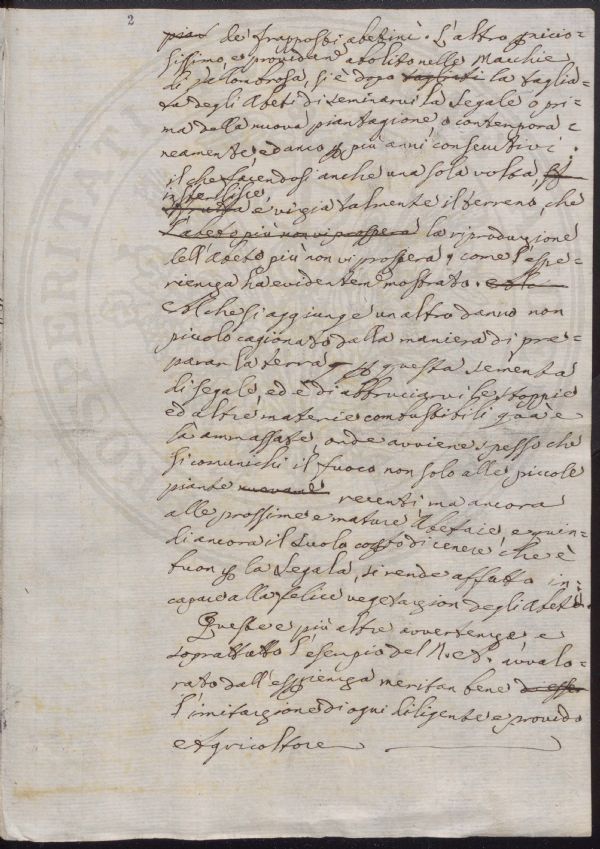 2
pian de frapposti abetini. L'altro p̱nicio=
sissimo, e providam̃ abolito nelle Macchie
di Valombrosa, si è dopo tagliati la taglia=
ta degli Abeti di seminarvi la Segale o pri=
ma della nuova piantagione o contempora=
neamente, ed anco p̱ più anni consecutivi.
il che facendosi anche una sola volta,
insterilisce,
e vizia talmente il terreno, che
l'abeto più non vi prospera la riproduzione
dell'Abeto più non vi prospera, come l'espe=
rienza ha evidentem̃ mostrato.
Al che si aggiunge un altro danno non
piccolo cagionato dalla maniera di pre=
parar la terra p̱ questa sementa
di segale, ed è di abbruciarvi le stoppie
ed altre materie combustibili qua e
là ammassate, onde avviene spesso che
si comunichi il fuoco non solo alle piccole
piante recenti, ma ancora
alle prossime e mature Abetaie, e quin=
di ancora il suolo cop̱to di cenere, che è
buon p̱ la Segala, si rende affatto in=
capace alla felice vegetazion degli Abeti.
Queste e più altre avvertenze e
soprattutto l'esempio del avvalo=
rato dall'esp̱rienza meritan bene d'esser
l'imitazione di ogni diligente e provido
Agricoltore